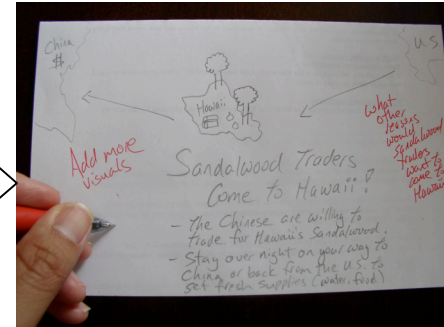 China
$
U.S
Hawaii
Add more
visuals
What
other
reasons
would
Sandalwood
Traders
want to
come to
Hawaii
Sandalwood Traders
Come to Hawaii!
- The Chinese are willing to
trade for Hawaii's Sandalwood.
- Stay over night on your way to
China or back from the U.S. to
get fresh supplies (water, food)